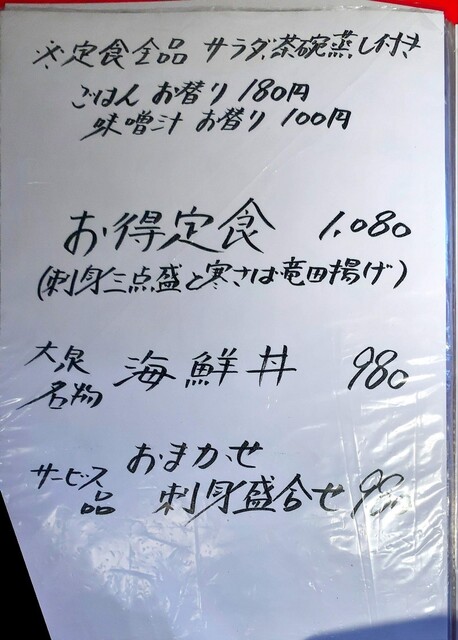 ※定食全品 サラダ、茶碗蒸し付き
ごはん お替り 180円
味噌汁 お替り 100円
お得定食 1,080
(刺身三点盛と寒さば竜田揚げ)
大泉名物 海鮮丼 980
サービス品 おまかせ
刺身盛合せ 980